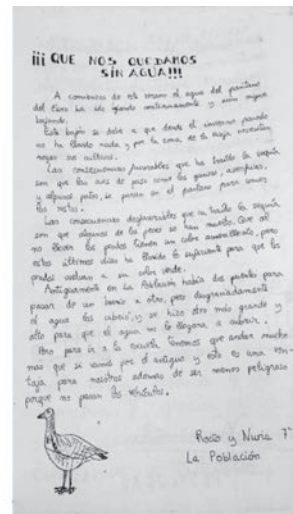 ¡¡¡ QUE NOS QUEDAMOS
SIN AGUA!!!
A comienzos de este verano el agua del pantano
del Ebro ha ido bajando continuamente y aún sigue
bajando.
Este bajón se debe a que desde el invierno pasado
no ha llovido nada y por la zona de la Rioja necesitan
regar los cultivos.
Las consecuencias favorables que ha traído la sequía
son que las aves de paso como los gansos,
y algunos patos, se paran en el pantano para comer
los restos.
Las consecuencias desfavorables que ha traído la sequía
son que algunos de los peces se han muerto. Que al
no llover los prados tienen un color amarillento, pero
estos últimos días ha llovido lo suficiente para que los
prados vuelvan a su color verde.
Antiguamente en La Población había dos puentes para
pasar de un barrio a otro, pero desgraciadamente
el agua los cubrió, y se hizo otro más grande y
alto para que el agua no lo llegara a cubrir.
Pero para ir a la escuela tenemos que andar mucho
mas que si vamos por el antiguo y esto es una ven-
taja para nosotros ademas de ser menos peligroso
porque no pasan los vehículos.
Rocío y Nuria 7º
La Población